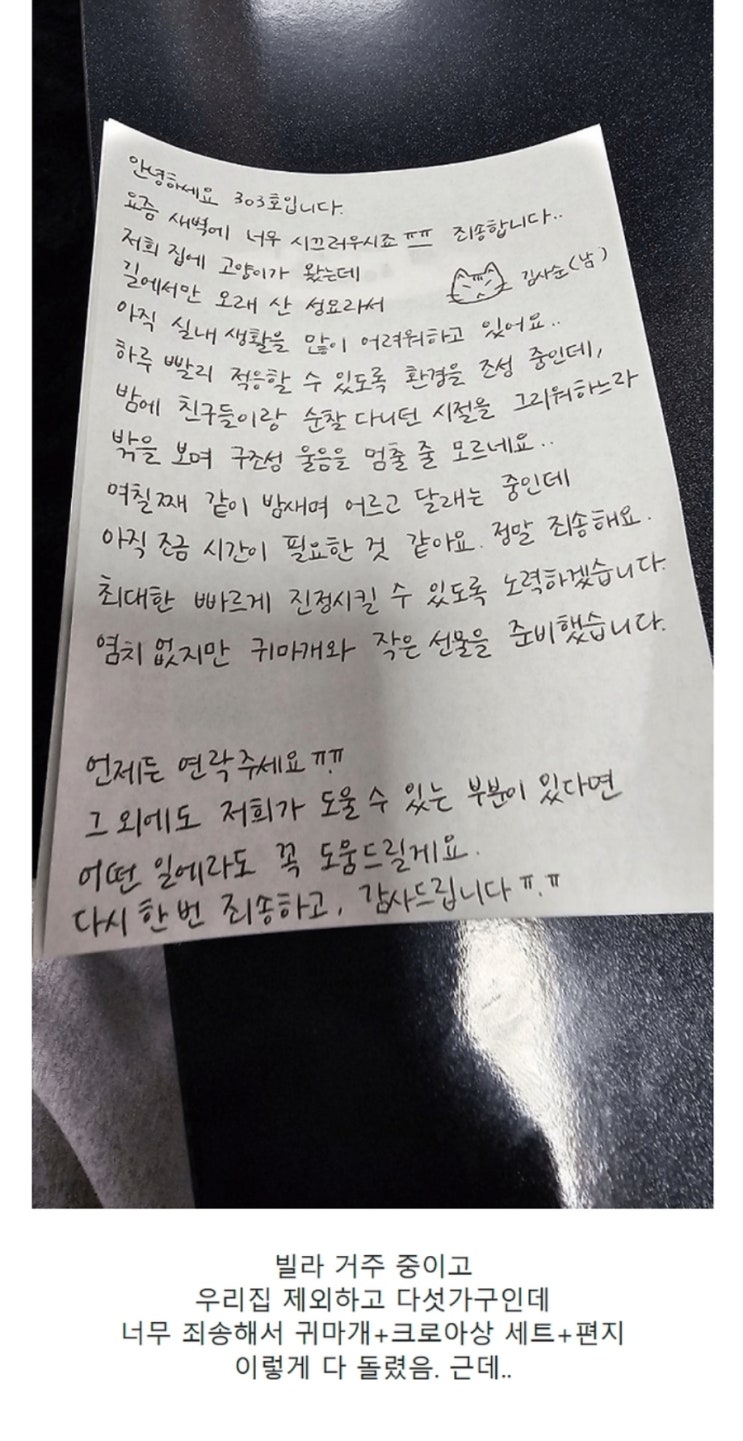 안녕하세요 303호입니다.
요즘 새벽에 너무 시끄러우시죠ㅠㅠ 죄송합니다..
저희 집에 고양이가 왔는데
김사순(남)
길에서만 오래 산 성묘라서
아직 실내 생활을 많이 어려워하고 있어요..
하루 빨리 적응할 수 있도록 환경을 조성 중인데,
밤에 친구들이랑 순찰 다니던 시절을 그리워하느라
밖을 보며 구조성 울음을 멈출 줄 모르네요..
며칠째 같이 밤새며 어르고 달래는 중인데
아직 조금 시간이 필요한 것 같아요. 정말 죄송해요.
최대한 빠르게 진정시킬 수 있도록 노력하겠습니다.
염치 없지만 귀마개와 작은 선물을 준비했습니다.
언제든 연락주세요ㅠ.ㅠ
그 외에도 저희가 도울 수 있는 부분이 있다면
어떤 일에라도 꼭 도움드릴게요.
다시 한 번 죄송하고, 감사드립니다ㅠ.ㅠ
빌라 거주 중이고
우리집 제외하고 다섯가구인데
너무 죄송해서 귀마개+크로아상 세트+편지
이렇게 다 돌렸음. 근데..